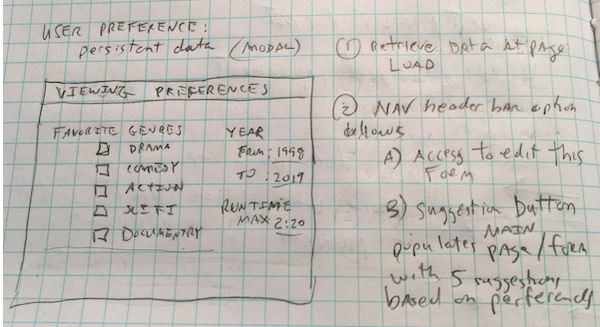 USER PREFERENCE:
persistent data (MODAL)
VIEWING PREFERENCES
FAVORITE GENRES
DRAMA
COMEDY
ACTION
SCIFI
DOCUMENTRY
YEAR
FROM: 1998
TO: 2019
RUNTIME
MAX 2:20
① Retrieve DATA AT PAGE
LOAD
② NAV header bar option
allows
A) Access to edit this
Form
B) Suggestion button
populates MAIN page/form
with 5 suggestions
based on